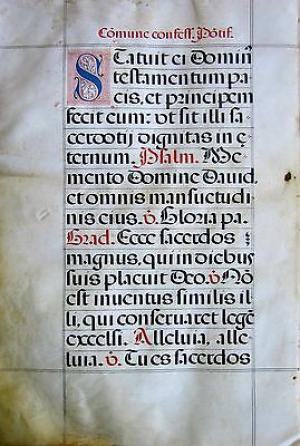 Cõmune confeſſ. Põtif.
STatuit ei Domin⁹
teſtamentum pa
cis, et principem
fecit eum: vt ſit illi ſa-
cerdotij dignitas in ę
ternum. Pſalm. Me-
mento Domine Dauid,
et omnis manſuetudi
nis eius. ℣. Gloria pa.
Grad. Ecce ſacerdos
magnus, qui in diebus
ſuis placuit Deo. ℣. Nõ
eſt inuentus ſimilis il-
li, qui conſeruaret legẽ
excelſi. Alleluia, alle-
luia. ℣. Tu es ſacerdos